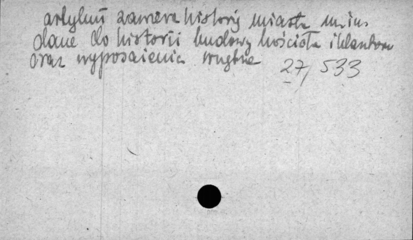 artykuł zawiera historię miasta m.in.
dane do historii budowy kościoła i klasztoru
oraz wyposażenia wnętrz 27, 533